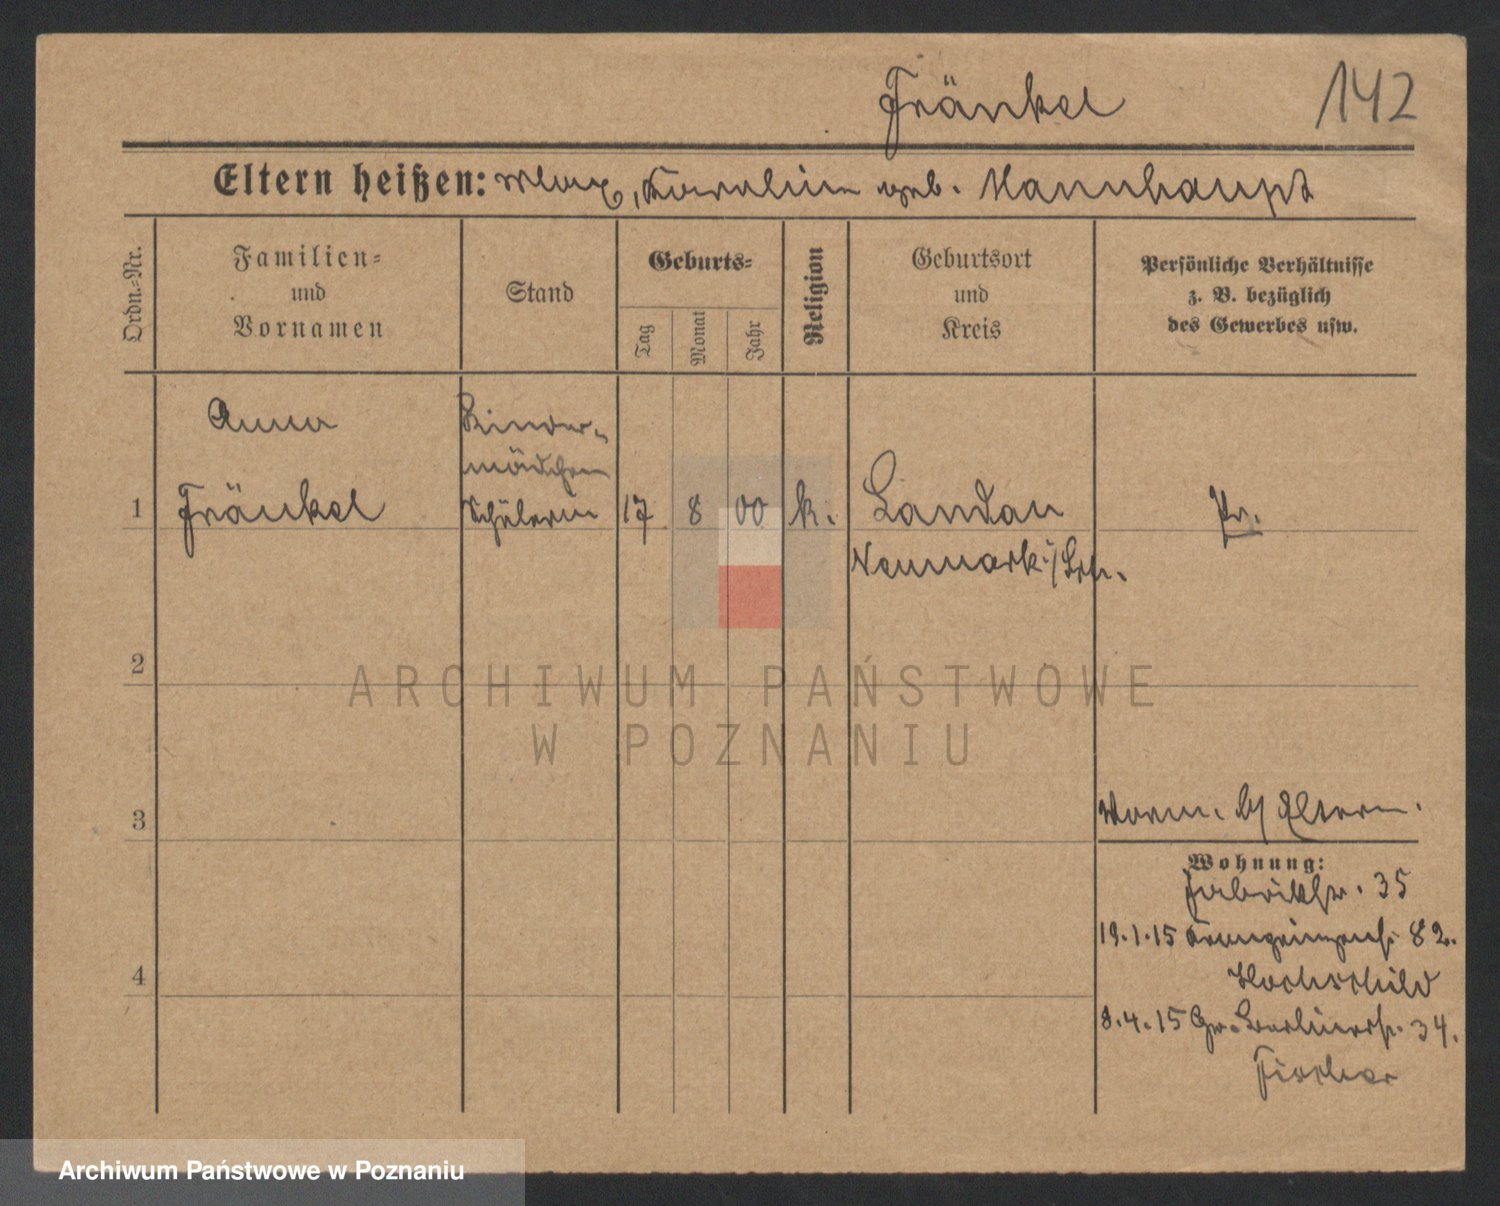 Fränkel
142
Eltern heißen: Max, Karoline geb. Mannhaupt
Ordn.-Nr.
Familien-
und
Vornamen
Stand
Geburts-
Tag
Monat
Jahr
Religion
Geburtsort
und
Kreis
Persönliche Verhältnisse
z. B. bezüglich
des Gewerbes usw.
Anna
Kinder-
mädchen
1 Fränkel Schülerin 17 8 00 k. Landau Pr.
Neumark
2
3
Eltern.
Wohnung:
Fabrikstr. 35
4
19.1.15 82.
Hochschild
8.4.15 Gr. Berlinerstr. 34.
Fischer
ARCHIWUM PAŃSTWOWE
W POZNANIU
Archiwum Państwowe w Poznaniu